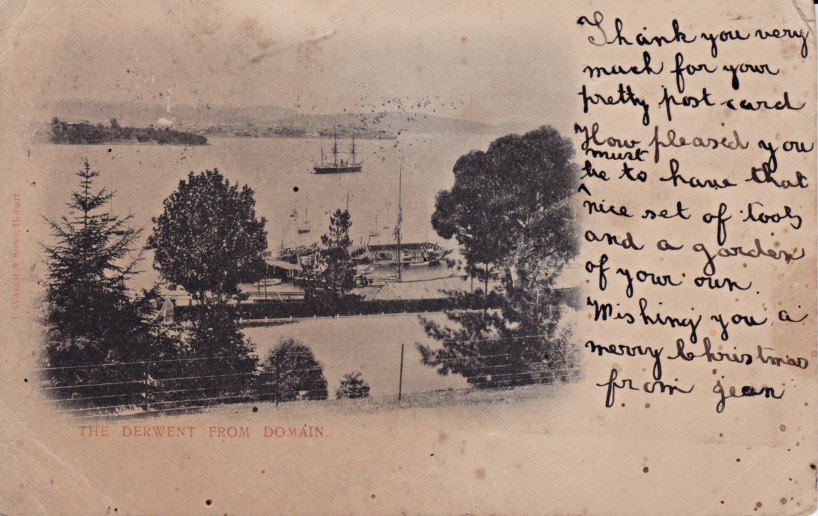 Thank you very
much for your
pretty post card
How pleased you
must
be to have that
nice set of tools
and a garden
of your own.
Wishing you a
merry Christmas
from Jean
THE DERWENT FROM DOMAIN.
J. WALCH & SONS, Hobart.